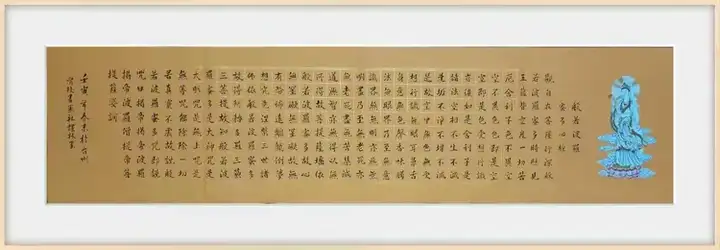 般若波羅
密多心經
觀自在菩薩行深般
若波羅密多時照見
五蘊皆空度一切苦
厄舍利子色不異空
空不異色色即是空
空即是色受想行識
亦復如是舍利子是
諸法空相不生不滅
不垢不淨不增不減
是故空中無色無受
想行識無眼耳鼻舌
身意無色聲香味觸
法無眼界乃至無意
識界無無明亦無無
明盡乃至無老死亦
無老死盡無苦集滅
道無智亦無得以無
所得故菩提薩埵依
般若波羅密多故心
無罣礙無罣礙故無
有恐怖遠離顛倒夢
想究竟涅槃三世諸
佛依般若波羅密多
故得阿耨多羅三藐
三菩提故知般若波
羅密多是大神咒是
大明咒是無上咒是
無等等咒能除一切
苦真實不虛故說般
若波羅密多咒即說
咒曰揭帝揭帝波羅
揭帝波羅僧揭帝菩
提薩婆訶
壬寅年春末於台州